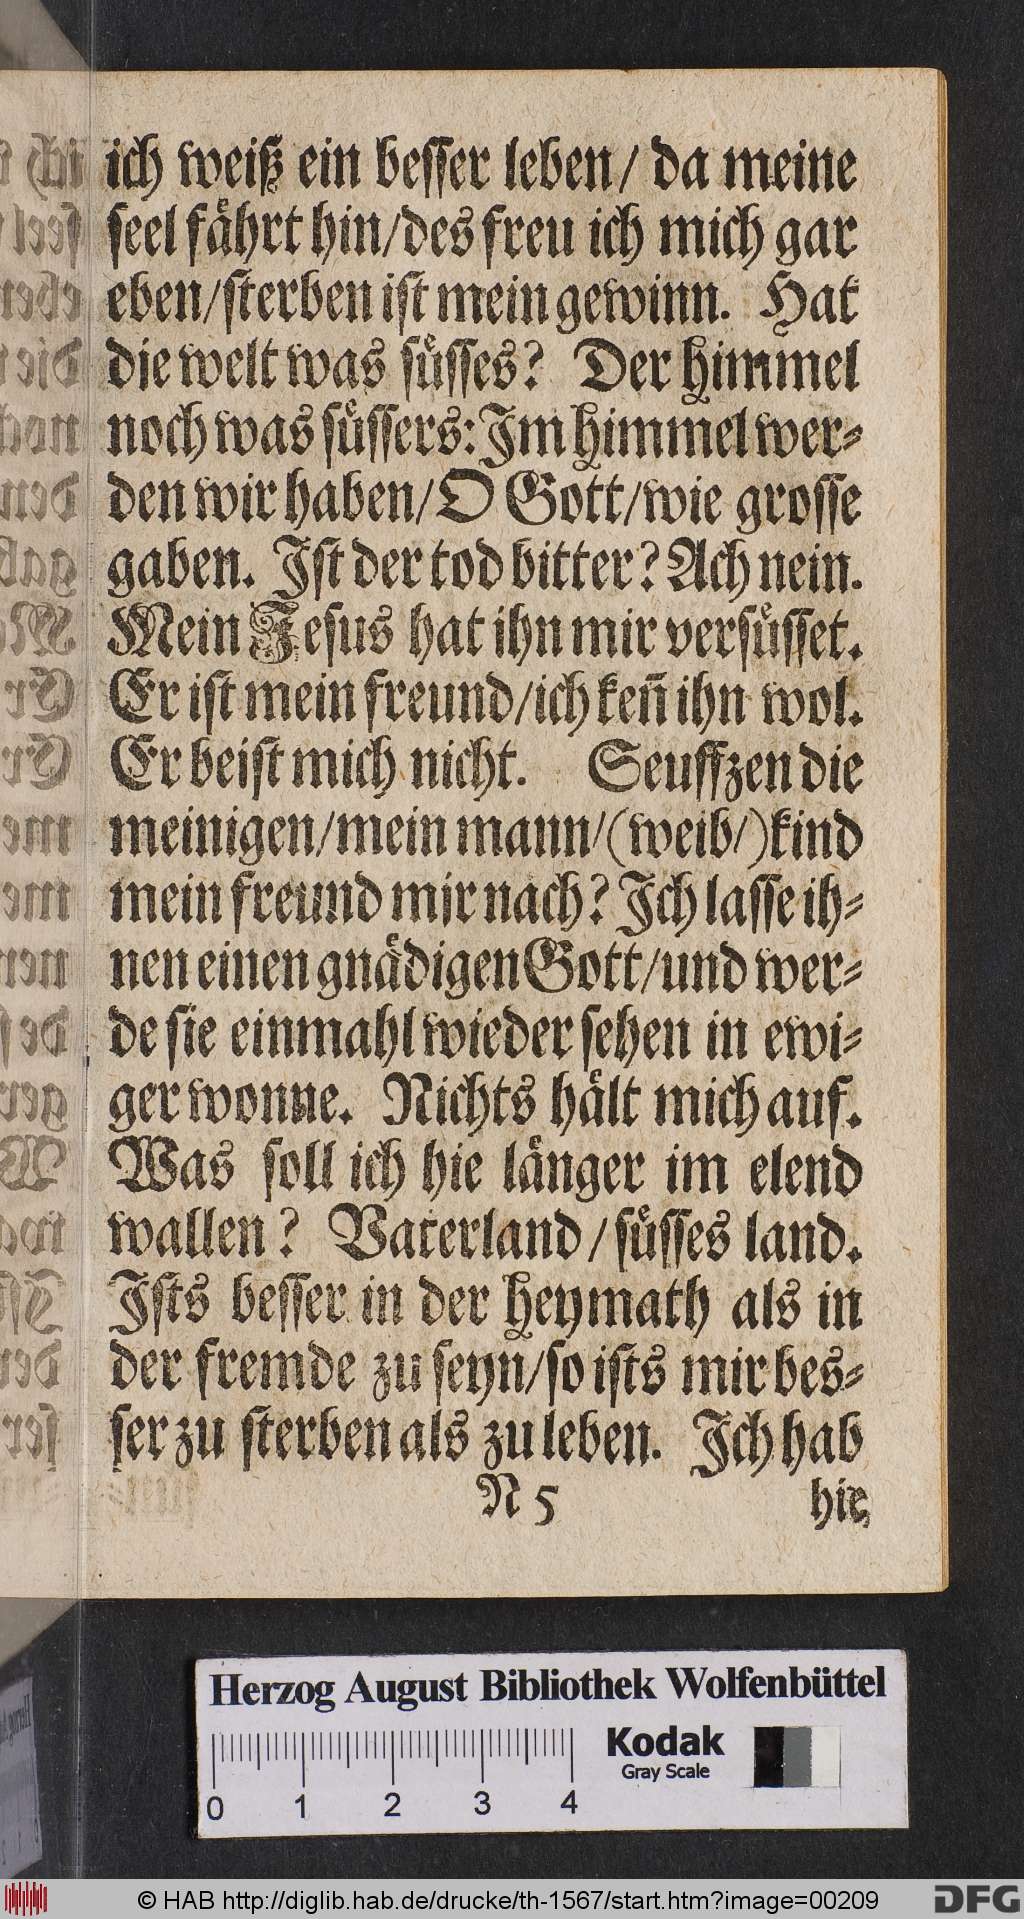 ich weiß ein besser leben/ da meine
seel fåhrt hin/des freu ich mich gar
eben/sterben ist mein gewinn. Hat
die welt was sůsses? Der himmel
noch was sůssers: Im himmel wer-
den wir haben/O Gott/wie grosse
gaben. Ist der tod bitter? Ach nein.
Mein Jesus hat ihn mir versůsset.
Er ist mein freund/ich keñ ihn wol.
Er beist mich nicht. Seuffzen die
meinigen/mein mann/(weib/)kind
mein freund mir nach? Ich lasse ih-
nen einen gnådigen Gott/und wer-
de sie einmahl wieder sehen in ewi-
ger wonne. Nichts hålt mich auf.
Was soll ich hie långer im elend
wallen? Vaterland/sůsses land.
Ists besser in der heymath als in
der fremde zu seyn/so ists mir bes-
ser zu sterben als zu leben. Ich hab
N 5 hie
Herzog August Bibliothek Wolfenbüttel
Kodak
Gray Scale
0 1 2 3 4
© HAB http://diglib.hab.de/drucke/th-1567/start.htm?image=00209
DFG